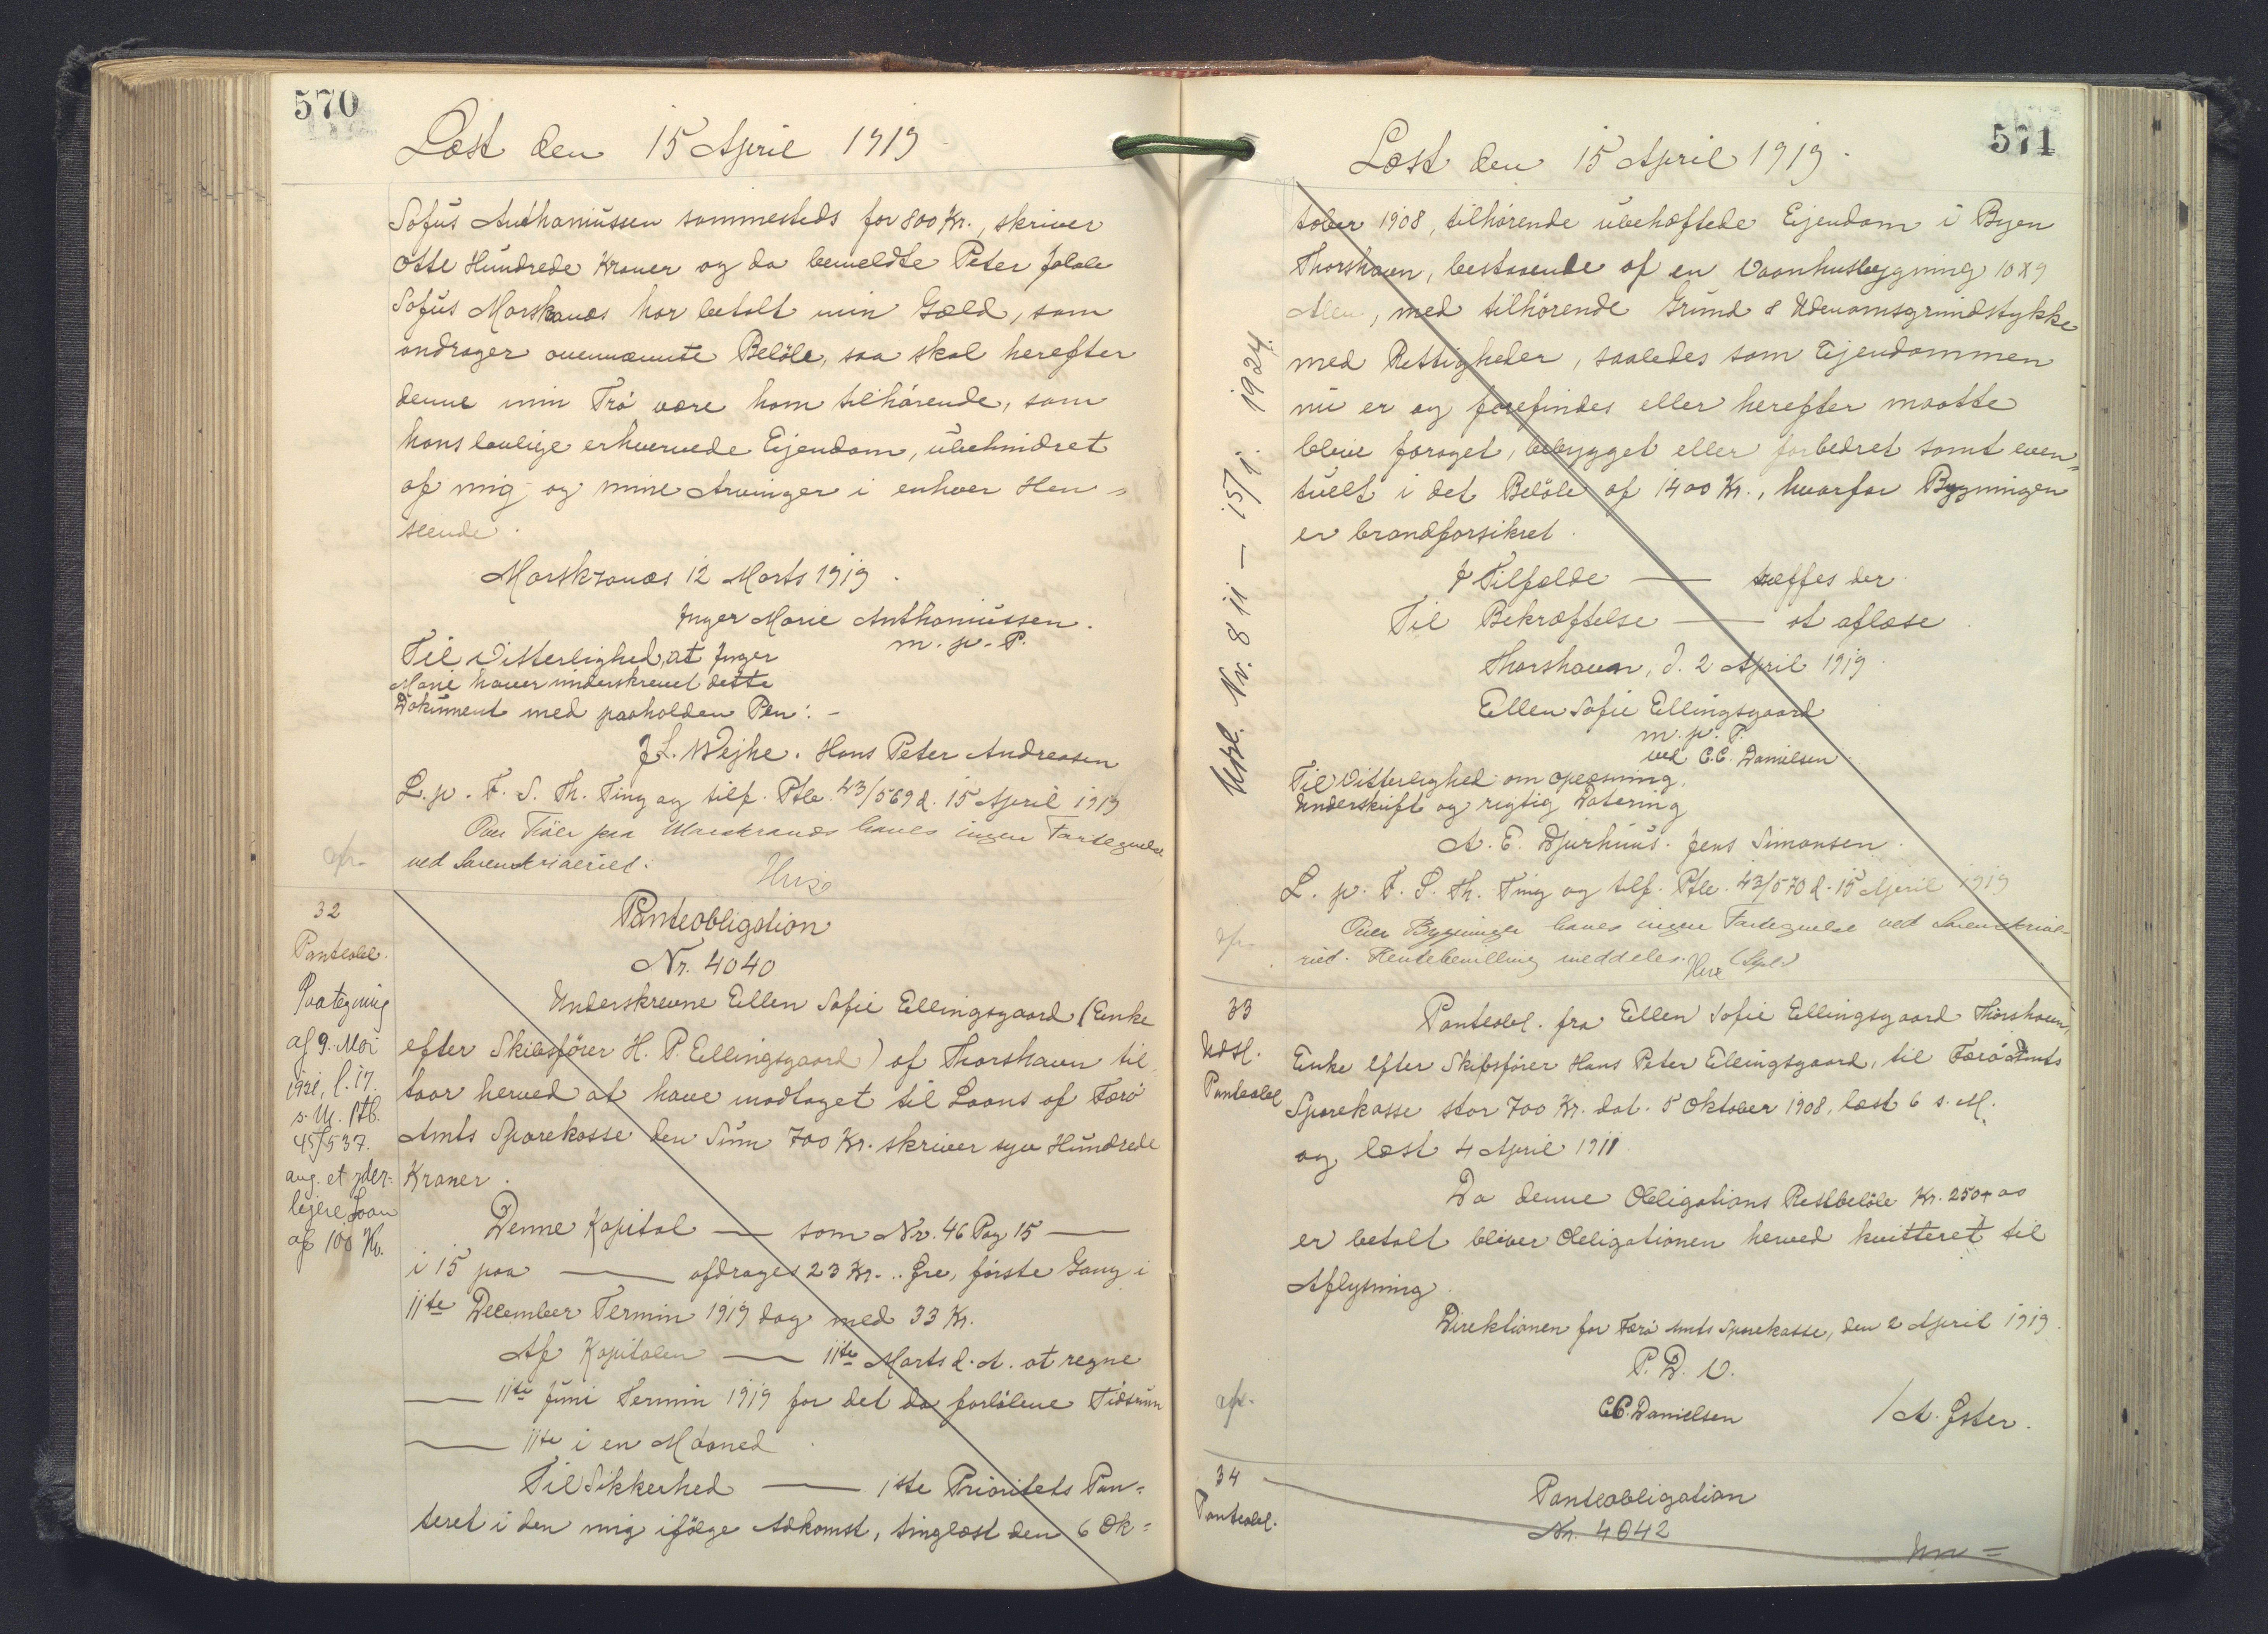 570
Læst den 15 April 1919
Sofus Anthoniussen sammesteds for 800 Kr., skriver
Otte Hundrede Kroner og da bemeldte Peter Jakob
Sofus Morskranæs har betalt min Gæld, som
andrager ovennævnte Beløb, saa skal herefter
denne min Trö være ham tilhørende, som
hans lovlige erhvervede Ejendom, ubehindret
af mig og mine Arvinger i enhver Hen=
seende.
Morskranæs 12 Marts 1919.
Inger Marie Anthoniussen.
m. p. P.
Til Vitterlighed, at Inger
Marie haver underskrevet dette
Dokument med paaholden Pen: -
J. L. Wejhe. Hans Peter Andreasen
L. p. F. S. Th. Ting og tilf. Ptb. 43/569 d. 15 April 1919
Over Tröer paa Morskranæs haves ingen Fortegnelse
ved Sorenskriveriet.
afr.
32
Panteobl.
Paategning
af 9. Mai
1921, l. 17.
s. M. ptb.
45/537.
ang. et yder-
ligere Laan
af 100 Kr.
Panteobligation
Nr. 4040
Underskrevne Ellen Sofie Ellingsgaard (Enke
efter Skibsfører H. P. Ellingsgaard) af Thorshavn til
staar herved at have modtaget til Laans af Færø
Amts Sparekasse den Sum 700 Kr. skriver syv Hundrede
Kroner.
Denne Kapital — som Nr. 46 Pag 15 —
i 15 paa — afdrages 23 Kr. .. Øre, første Gang i
11te December Termin 1919 dog med 33 Kr.
Af Kapitalen — 11te Marts d. A. at regne
— 11te Juni Termin 1919 for det da forløbne Tidsrum
— 11te i en Maaned.
Til Sikkerhed — 1ste Prioritets Pan=
teret i den mig ifølge Adkomst, tinglæst den 6 Ok=
571
Læst den 15 April 1919.
tober 1908, tilhørende ubehæftede Ejendom i Byen
Thorshavn, bestaaende af en Vaanhusbygning 10 x 9
Alen, med tilhørende Grund & Udenomsgrundstykke
med Rettigheder, saaledes som Ejendommen
nu er og forefindes eller herefter maatte
blive forøget, bebygget eller forbedret samt even=
tuelt i det Beløb af 1400 Kr., hvorfor Bygningen
er brandforsikret.
I Tilfælde — træffes der.
Til Bekræftelse — at aflæse.
Thorshavn, d. 2 April 1919.
Ellen Sofie Ellingsgaard
m. p. P.
ved C.C. Danielsen.
Til Vitterlighed om Oplæsning,
Underskrift og rigtig Datering
A. E. Djurhuus. Jens Simonsen.
L. p. F. S. Th. Ting og tilf. Ptb. 43/570 d. 15 April 1919
Over Bygninger haves ingen Fortegnelse ved Sorenskrive-
riet. Rentebevilling meddeles.
afr.
Udsl. Nr. 811 - 15/1. 1924.
33
Udsl.
Panteobl
Panteobl. fra Ellen Sofie Ellingsgaard Thorshavn,
Enke efter Skibsfører Hans Peter Ellingsgaard, til Færø Amts
Sparekasse stor 700 Kr. dat. 5 Oktober 1908, læst 6 s. M.
og læst 4 April 1911.
Da denne Obligations Restbeløb Kr. 250+00
er betalt bliver Obligationen herved kvitteret til
Aflysning.
Direktionen for Færø Amts Sparekasse, den 2 April 1919.
P. D. V.
C.C. Danielsen / A. Gster.
afr.
34
Panteobl.
Panteobligation
Nr. 4042